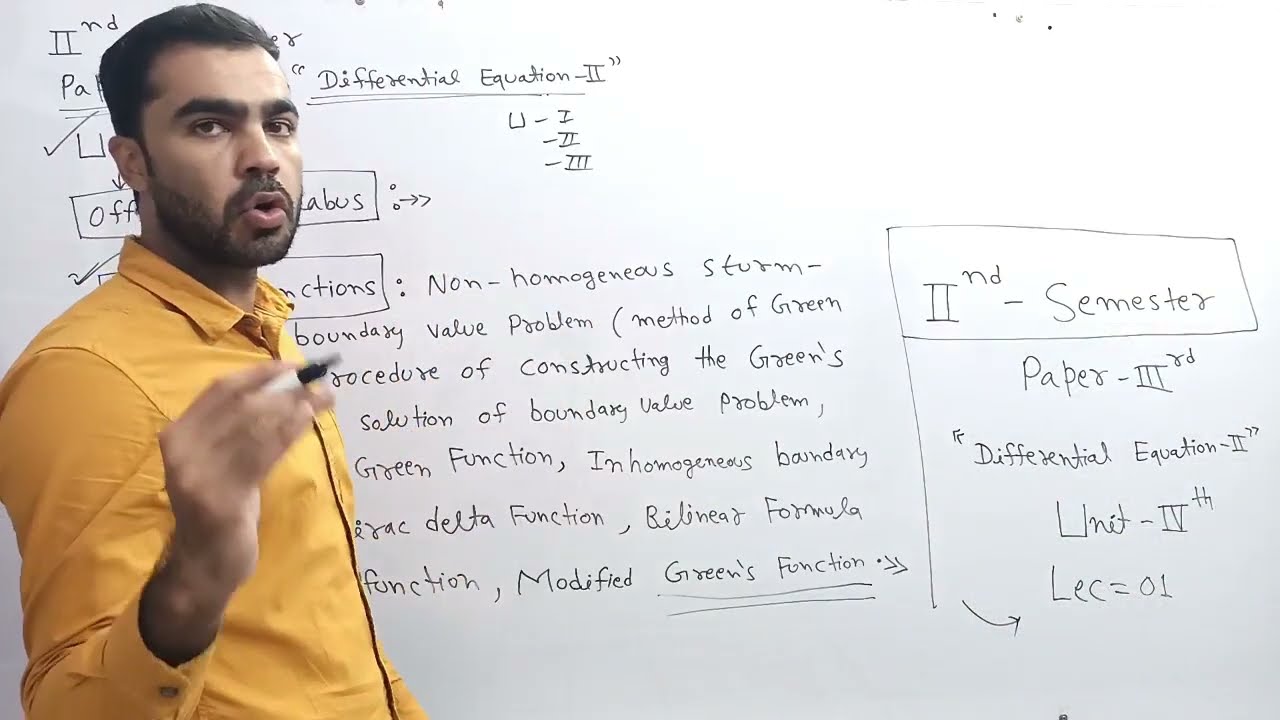 IInd
"Differential Equation-II"
U - I
- II
- III
: →»
nctions : Non-homogeneous Sturm-
boundary value Problem (method of Green
rocedure of constructing the Green's
solution of boundary value problem,
Green Function, Inhomogeneous boundary
irac delta Function, Bilinear Formula
function, Modified Green's Function ·»
IInd - Semester
Paper - IIIrd
"Differential Equation-II"
Unit - IVth
Lec = 01